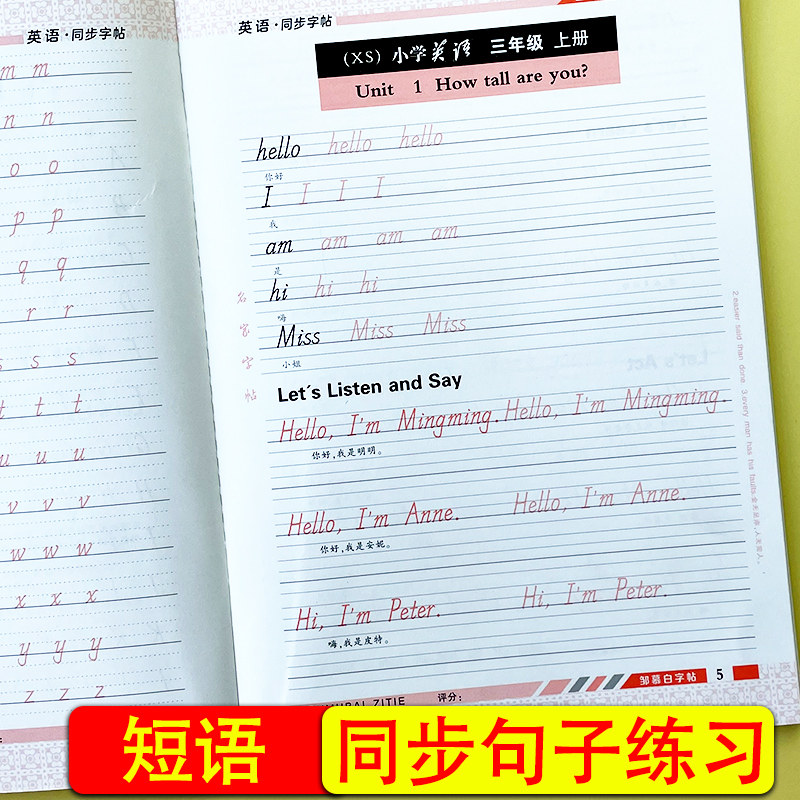 英语·同步字帖
m m
n n
o o
p p
q q
r r
s s s
t t t
u u u
v v v
w w w
x x x
y y y
z z z
英语·同步字帖
(XS) 小学英语 三年级 上册
Unit 1 How tall are you?
hello hello hello
你好
I I I I
我
am am am am
是
hi hi hi
嗨
Miss Miss Miss
小姐
名笔字帖
Let's Listen and Say
Hello, I'm Mingming. Hello, I'm Mingming.
你好,我是明明。
Hello, I'm Anne. Hello, I'm Anne.
你好,我是安妮。
Hi, I'm Peter. Hi, I'm Peter.
嗨,我是皮特。
2.easier said than done. 3.every man has his faults.金无足赤,人无完人。
ZITIE
评分:
邹慕白字帖 5
短语 同步句子练习